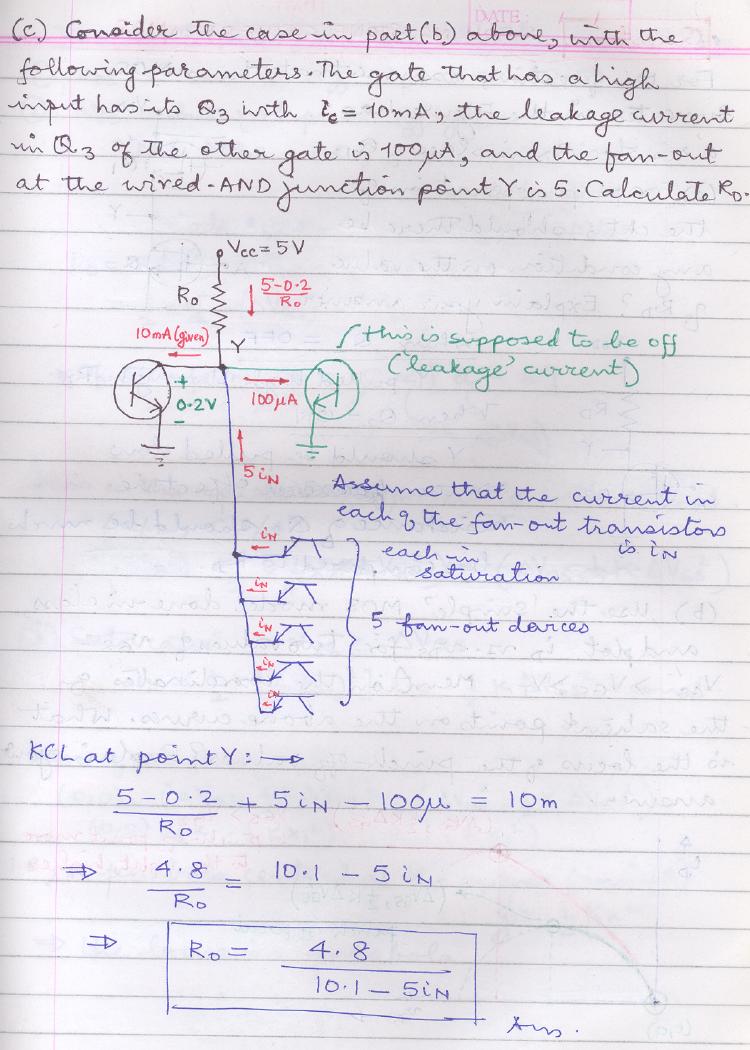 DATE
(c.) Consider the case in part (b) above, with the
following parameters. The gate that has a high
input has its Q3 with ic = 10mA, the leakage current
in Q3 of the other gate is 100μA, and the fan-out
at the wired-AND junction point Y is 5. Calculate RD.
Vcc = 5V
RD
5-0.2
RD
10mA (given)
Y
this is supposed to be off
('leakage' current)
+
0.2V
-
100μA
5iN
Assume that the current in
each of the fan-out transistors
is iN
each in
saturation
iN
iN
iN
iN
iN
5 fan-out devices
KCL at point Y: →
5 - 0.2 / RD + 5iN - 100μ = 10m
⇒ 4.8 / RD = 10.1 - 5iN
⇒ RD = 4.8 / 10.1 - 5iN
Ans.